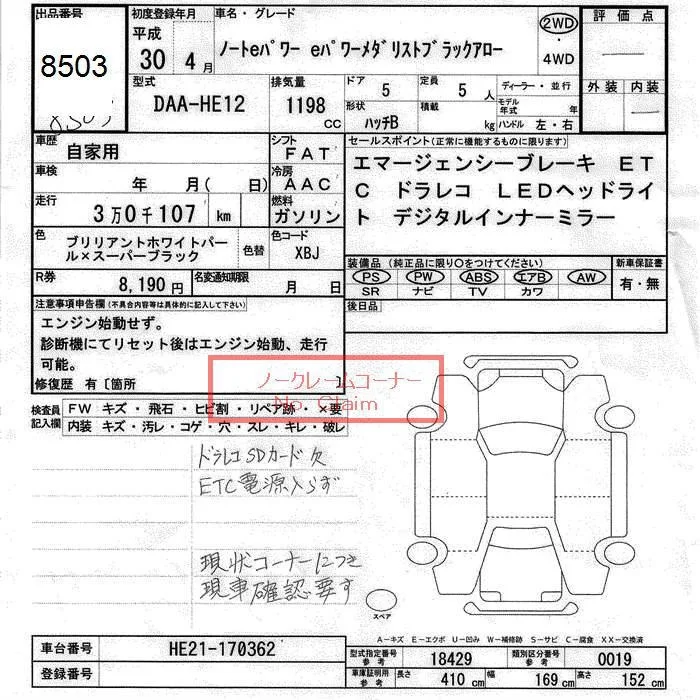 出品番号 初度登録年月 車名・グレード 評価点
8503 平成 30 4月 ノートeパワー eパワーメダリストブラックアロー 2WD ・ 4WD
型式 排気量 ドア 5 定員 5人 ディーラー・並行 外装 内装
DAA-HE12 1198 cc 形状 ハッチB 積載 kg モデル年式 年 ハンドル 左・右
車歴 自家用 シフト FAT セールスポイント(正常に機能するものに限ります)
車検 年 月( 日) 冷房 AAC エマージェンシーブレーキ ET
走行 3万0千107 km 燃料 ガソリン C ドラレコ LEDヘッドライ
ト デジタルインナーミラー
色 ブリリアントホワイトパー 色替 色コード
ル×スーパーブラック XBJ
装備品(純正品に限り○をつけてください) 新車保証書
PS PW ABS エアB AW 有・無
SR ナビ TV カワ
R券 8,190円 名変通知期限 月 日 後日品
注意事項申告欄(不具合内容等は具体的に記入して下さい)
エンジン始動せず。
診断機にてリセット後はエンジン始動、走行
可能。
修復歴 有〔箇所 〕
ノークレームコーナー
No Claim
検査員 FW キズ・飛石・ヒビ割・リペア跡・×要
記入欄 内装 キズ・汚レ・コゲ・穴・スレ・キレ・破レ
ドラレコSDカード欠
ETC電源入らず
現状コーナーにつき
現車確認要す
スペア
A-キズ E-エクボ U-凹み W-補修跡 S-サビ C-腐食 XX-交換済
車台番号 HE21-170362 型式指定番号 参考 18429 類別区分番号 参考 0019
登録番号 車庫証明用 参考 長さ 410 cm 幅 169 cm 高さ 152 cm